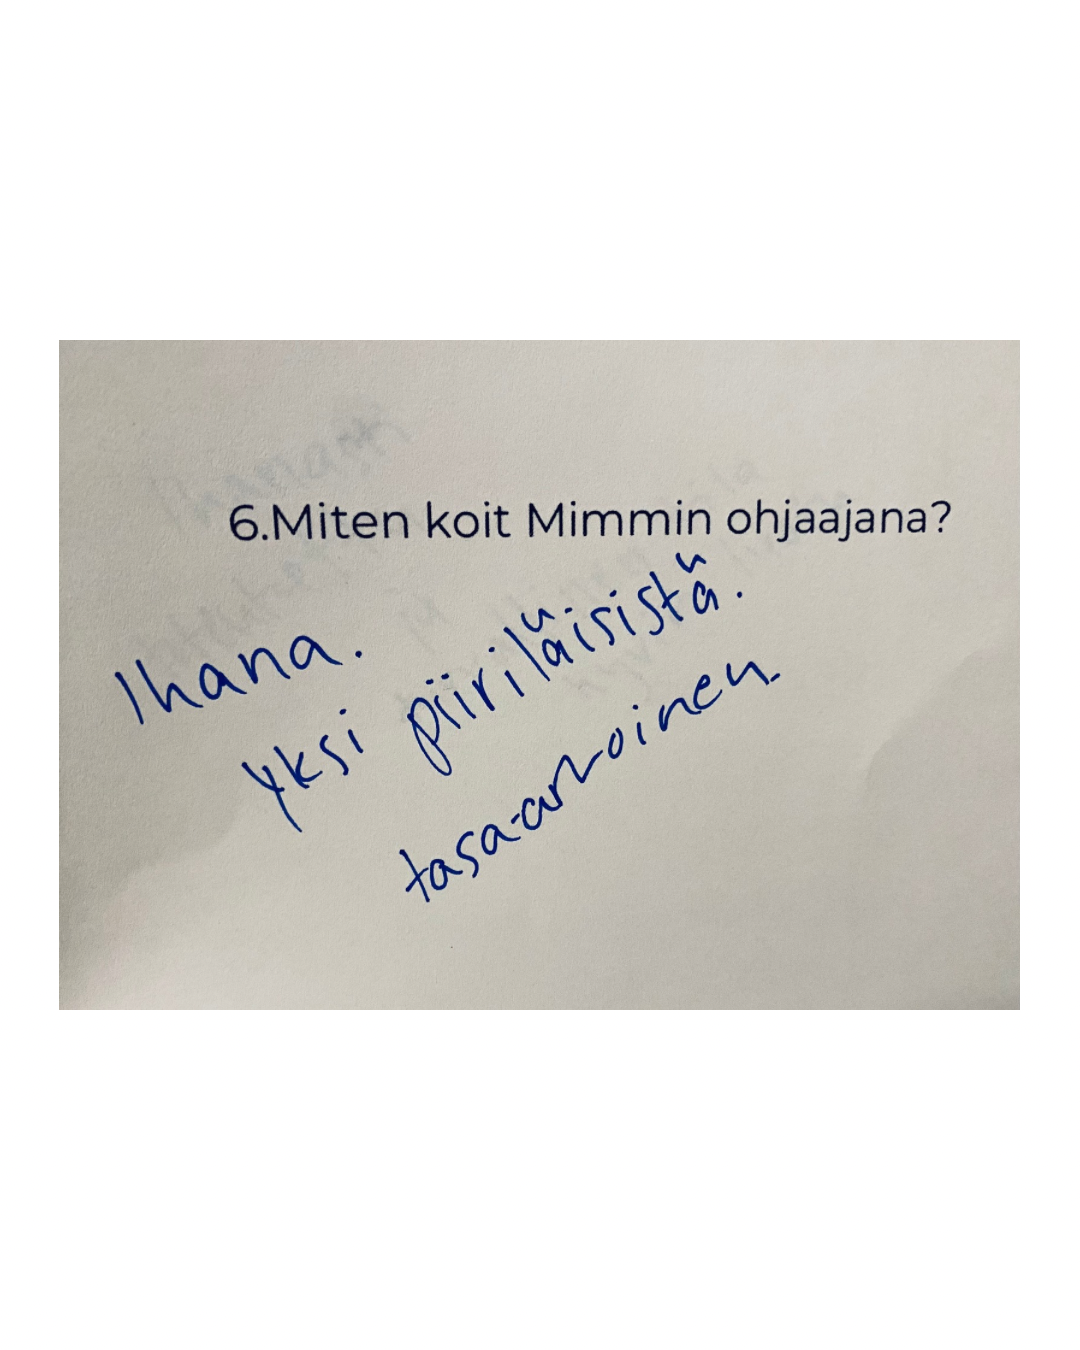 6.Miten koit Mimmin ohjaajana?
Ihana.
Yksi piiriläisistä.
tasa-arvoinen.